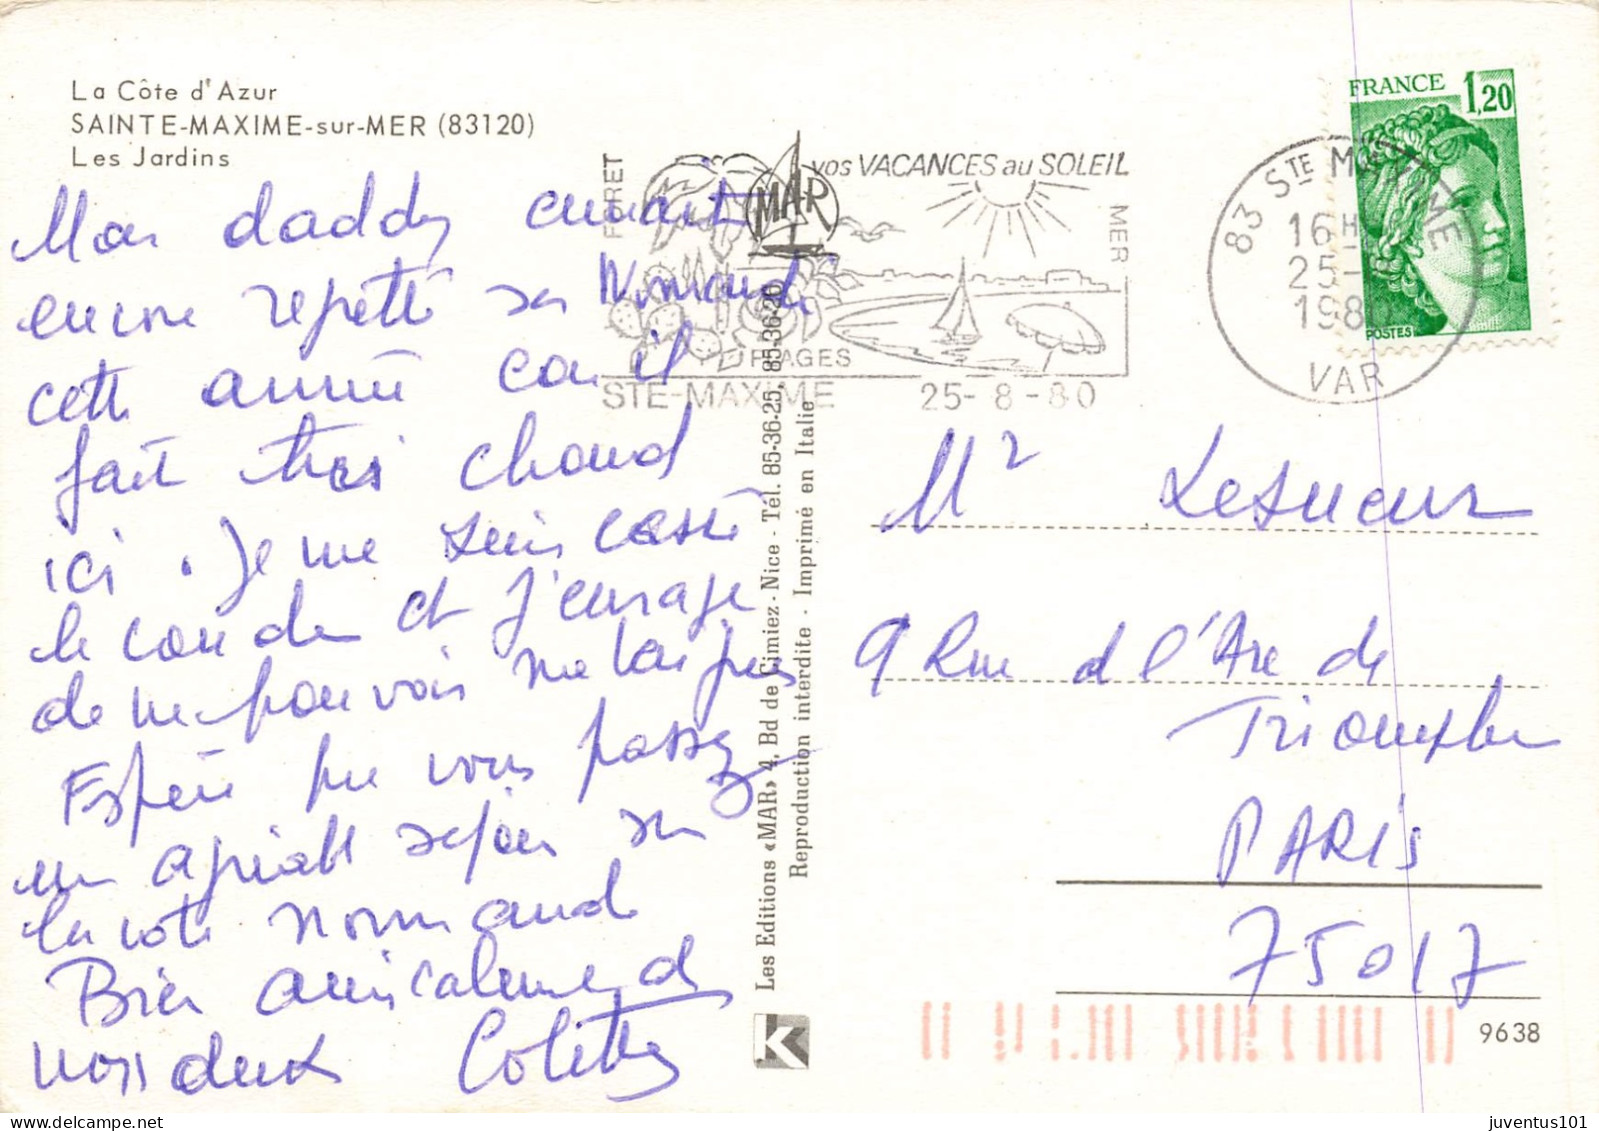 La Côte d'Azur
SAINTE-MAXIME-sur-MER (83120)
Les Jardins
Mon daddy aurait
encore repetté sa Normandi
cette année car il
fait très chaud
ici. Je me suis cassé
le coude et j'enrage
de ne pouvoir me baigner
Espère que vous passez
un agréable séjour sur
la côte normande
Bien amicalement à
vous deux Colette
FORET
MAR
vos VACANCES au SOLEIL
MER
PLAGES
STE-MAXIME 25-8-80
83 STE MAXIME
16H
25-8
1980
VAR
FRANCE 1,20
POSTES
Les Editions «MAR» 4, Bd de Cimiez - Nice - Tél. 85-36-25, 85-36-20
Reproduction interdite - Imprimé en Italie
K
Mr Lesueur
9 Rue de l'Arc de
Triomphe
PARIS
75017
9638
juventus101